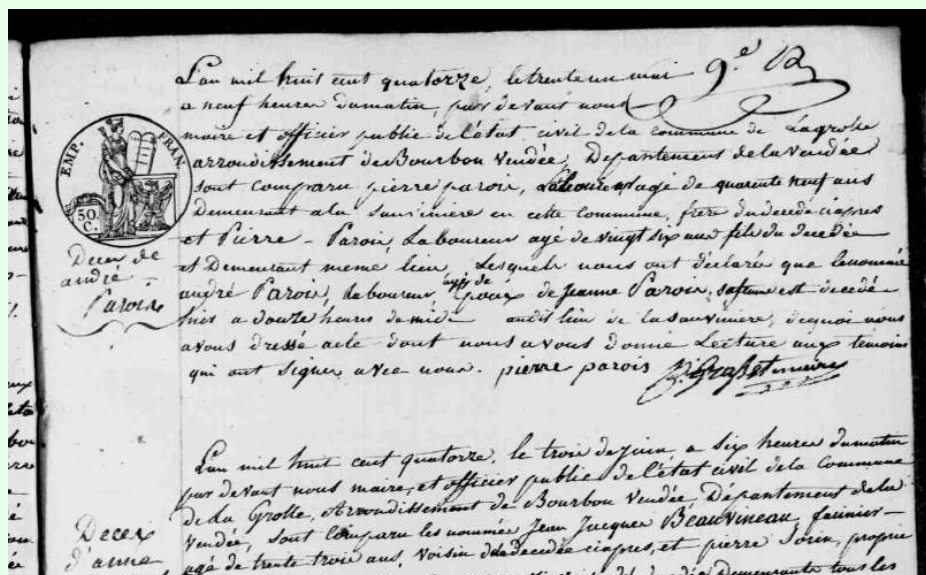 L'an mil huit cent quatorze, le trente un mai
a neuf heures du matin, par devant nous
maire et officier public de l'état civil de la commune de Lagrolle
arrondissement de Bourbon Vendée, Département de la Vendée
sont comparu pierre parois, Laboureur agé de quarente neuf ans
Demeurant a la Sauviniere en cette commune, frere du decedé ciapres
et Pierre - Parois, Laboureur agé de vingt six ans fils du decedée
et Demeurant meme lieu, Lesquels nous ont déclarés que le nommé
andré Parois, laboureur époux de Jeanne Parois, sa femme est decedé
hier a douze heures de midi audit lieu de la sauviniere, de quoi nous
avons dressé acte dont nous avons donné Lecture aux témoins
qui ont signer avec nous. pierre parois
EMP. FRAN
50
C.
Deces de
andré
Parois
L'an mil huit cent quatorze, le trois de juin, a six heures du matin
par devant nous maire, et officier public de l'état civil de la Commune
de La Grolle, Arrondissement de Bourbon Vendée, Département de la
Vendée, sont comparu les nommés Jean Jacques Beauvineau, farinier -
agé de trente trois ans, voisin de la decedée ciapres, et pierre Sorin, propri
demeurants tous les
Deces
d'anne